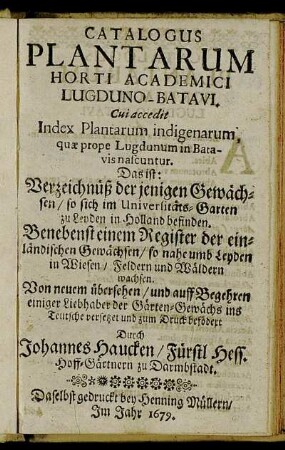 CATALOGUS
PLANTARUM
HORTI ACADEMICI
LUGDUNO-BATAVI.
Cui accedit
Index Plantarum indigenarum,
quæ prope Lugdunum in Bata-
vis nascuntur.
Das ist:
Verzeichnüß der jenigen Gewäch-
sen / so sich im Universitäts-Garten
zu Leyden in Holland befinden.
Benebenst einem Register der ein-
ländischen Gewächsen / so nahe umb Leyden
in Wiesen / Feldern und Wäldern
wachsen.
Von neuem übersehen / und auff Begehren
einiger Liebhaber der Gärten-Gewächs ins
Teutsche versetzet und zum Druck befödert
Durch
Johannes Haucken / Fürstl Hess.
Hoff-Gärtnern zu Darmbstadt.
Daselbst gedruckt bey Henning Müllern /
Im Jahr 1679.